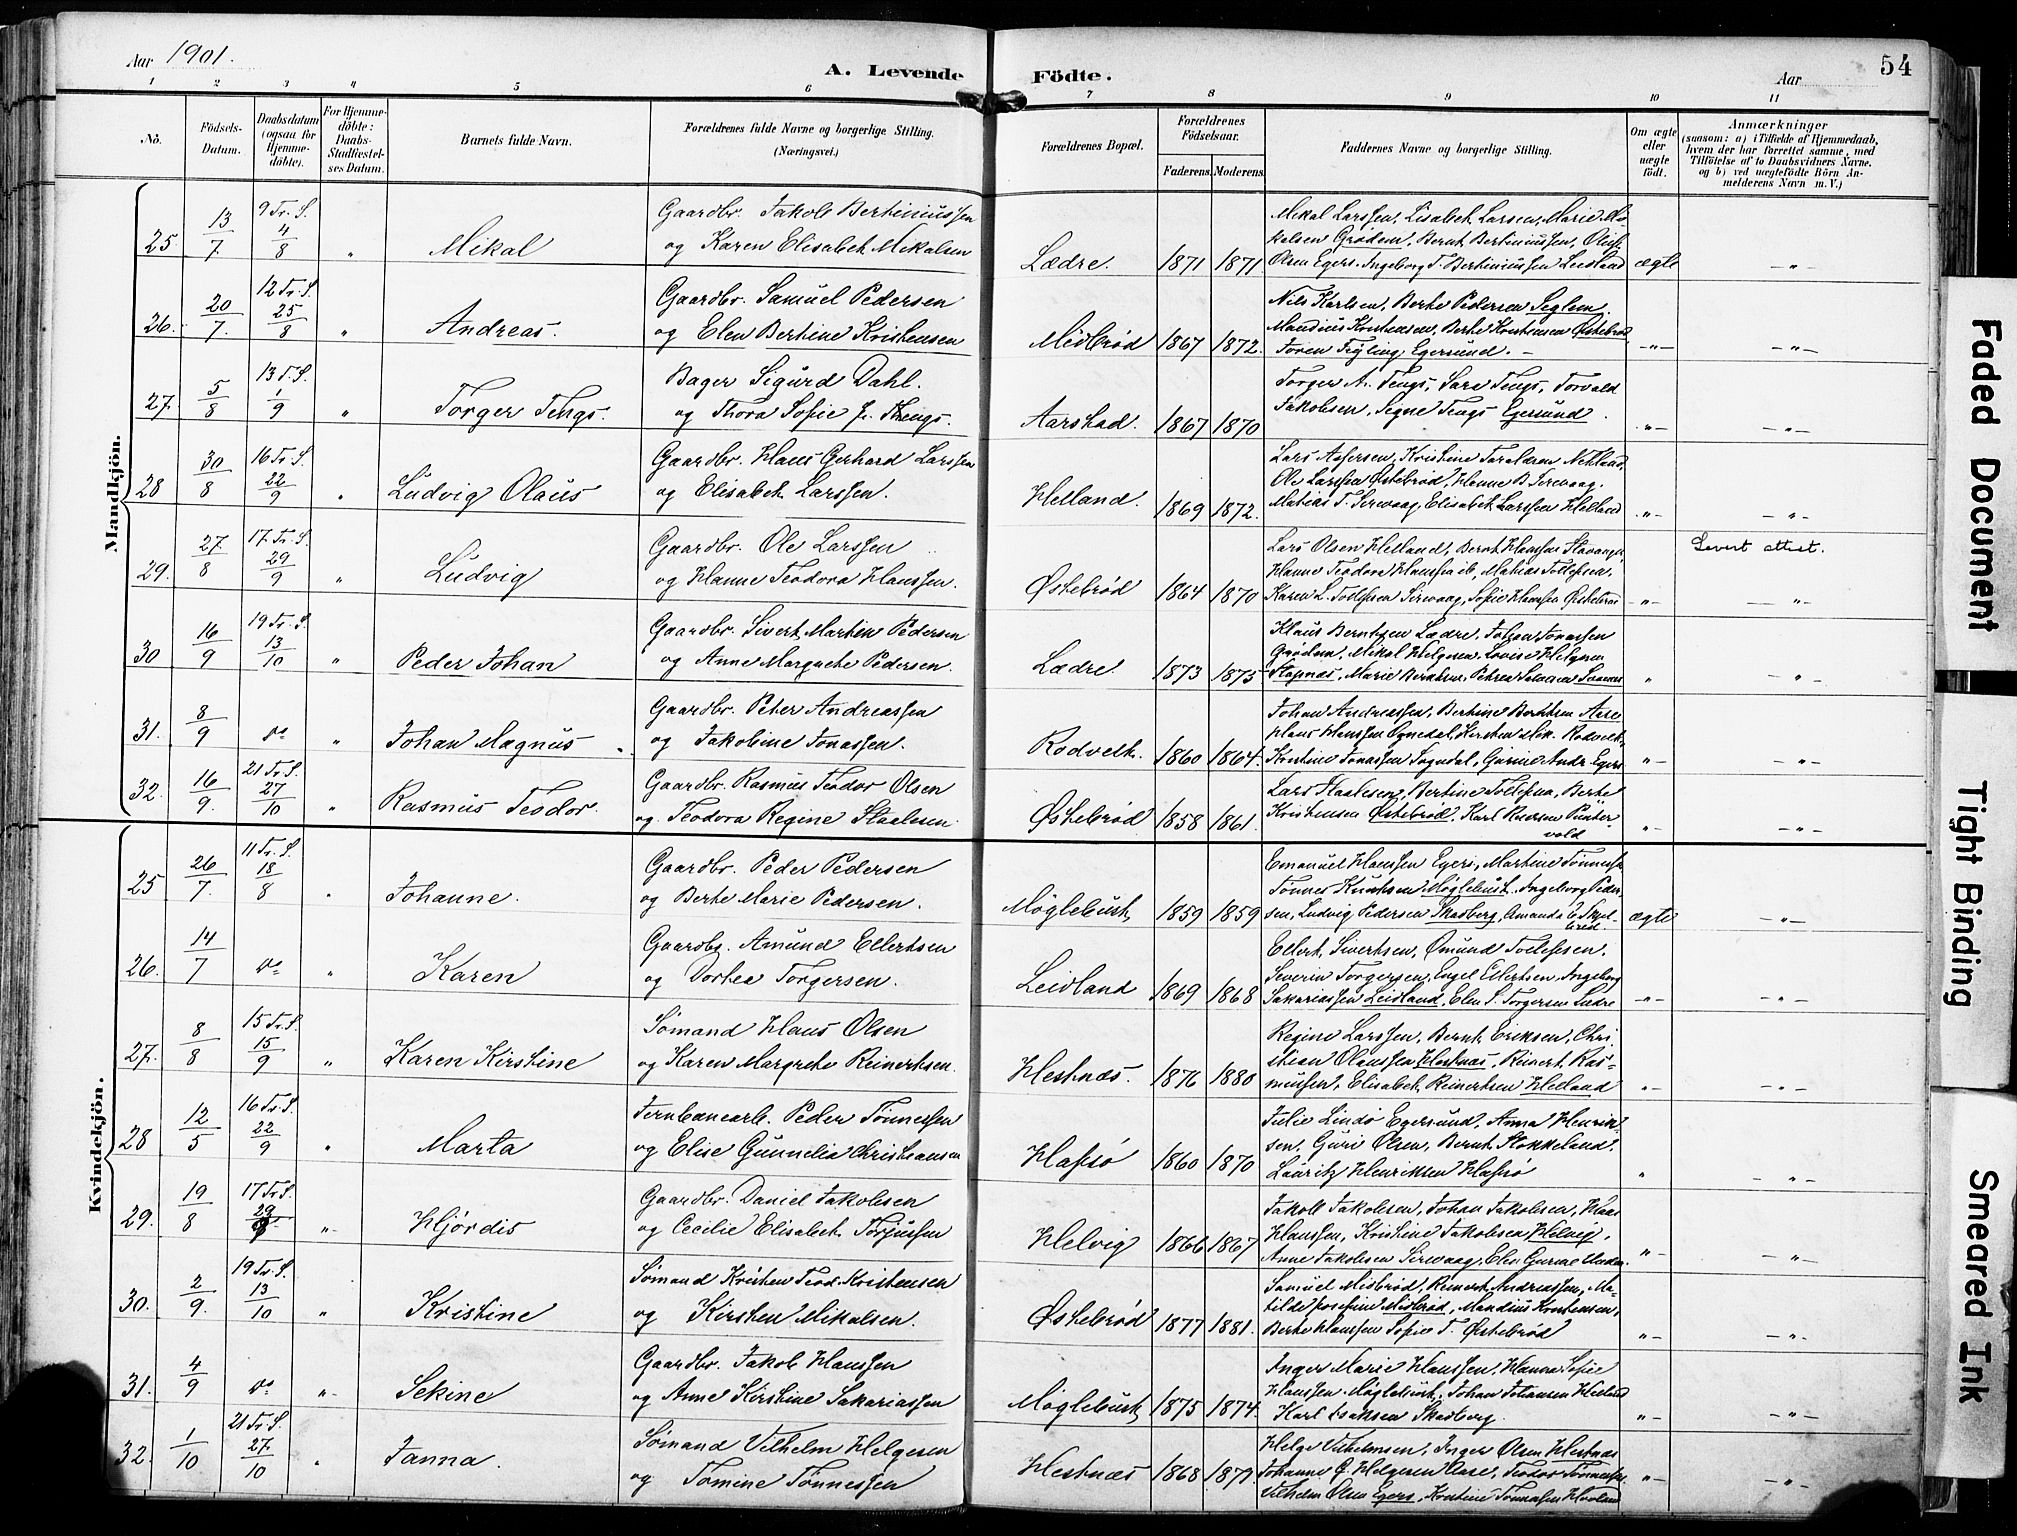 Aar 1901.
A. Levende Födte.
Aar
54
1 2 3 4 5 6 7 8 9 10 11
No.
Födsels-Datum.
Daabsdatum (ogsaa for Hjemme-döbte).
For Hjemme-döbte: Daabs-Stadfæstel-ses Datum.
Barnets fulde Navn.
Forældrenes fulde Navne og borgerlige Stilling. (Næringsvei.)
Forældrenes Bopæl.
Forældrenes Födselsaar.
Faderens. Moderens.
Faddernes Navne og borgerlige Stilling.
Om ægte eller uægte födt.
Anmærkninger
(saasom: a) i Tilfælde af Hjemmedaab, hvem der har forrettet samme, med Tilföielse af to Daabsvidners Navne. og b) ved uægtefödte Börn An-melderens Navn m. V.)
Mandkjön.
25. 13/7 9 Tr. S. 4/8 " Mikal
Gaardbr. Jakob Bertiniussen
og Karen Elisabet Mikalsen
Lædre. 1871 1871
Mikal Larssen, Lisabet Larsen, Marie Mi-
kalsen Grødem, Bernt Bertiniussen, Oluf
Olsen Egers. Ingeborg T. Bertiniussen Leidland
ægte -"-
26. 20/7. 12 Tr. S. 25/8 " Andreas.
Gaardbr. Samuel Pedersen
og Elen Bertine Kristensen
Midbrød 1867 1872.
Nils Karlsen, Berte Pedersen Seglem.
Mandius Kristensen, Berte Kristensen Østebrød
Egersund. -
-"- -"-
27. 5/8 13 T. S. 1/9 " Torger Tengs.
Bager Sigurd Dahl.
og Thora Sofie f. Thengs.
Aarstad. 1867 1870
Torger A. Tengs, Sara Tengs, Torvald
Jakobsen, Signe Tengs Egersund.
-"- -"-
28 30/8 16 Tr. S. 22/9 " Ludvig Olaus
Gaardbr. Hans Gerhard Larssen
og Elisabet Larssen.
Helland. 1869 1872.
Lars Kristine Taraldsen Netland.
Ole Larssen Østebrød, Hanne B. Sirevaag.
Matias T. Sirevaag, Elisabet Larssen Helland
-"- -"-
29. 27/8 17 Tr. S. 29/9 " Ludvig
Gaardbr. Ole Larssen
og Hanne Teodora Hanssen.
Østebrød 1864 1870
Lars Olsen Helland, Bernt Hanssen Stavanger
Hanne Teodora Hanssen ib, Matias Tollefsen,
Karen L. Tollefsen Sirevaag, Sofie Hanssen Østebrød
-"- Levert attest. -"-
30 16/9 19 Tr. S. 13/10 " Peder Johan
Gaardbr. Sivert Martin Pedersen
og Anne Margrete Pedersen.
Lædre. 1873 1875
Klaus Berntsen Lædre, Johan Jonassen
Grødem, Mikal Helgesen, Lovise Helgesen
Stapnæs, Marie Berntsen, Petrea Salvesen
" -"-
31. 8/9 do " Johan Magnus
Gaardbr. Peter Andreassen
og Jakobine Jonassen.
Rodvelt. 1860 1864.
Johan Andreassen, Bertine Berntsen Aase
Hans Hanssen Rodvelt,
Kristine Jonassen Sogndal, Gurine Andr. Egers.
-"- -"-
32. 16/9. 21 Tr. S. 27/10 " Rasmus Teodor.
Gaardbr. Rasmus Teodor Olsen
og Teodora Regine Staalesen
Østebrød 1858 1861.
Lars Staalesen, Bertine Tollefsen, Berte
Kristensen Østebrød. Karl Puntervold
-"- -"-
Kvindekjön.
25. 26/7. 11 Tr. S. 18/8 " Johanne.
Gaardbr. Peder Pedersen
og Berte Marie Pedersen.
Møglebust 1859 1859
Emanuel Hanssen Egers, Martine Tønnessen
Tønnes Knutsen Møglebust, Ingeborg Peder-
sen, Ludvig Pedersen Skadberg, Amanda
ægte -"-
26. 14/7 do " Karen
Gaardbr. Amund Ellertsen
og Dortea Torgersen.
Leidland 1869 1868
Ellert Sivertsen, Ømund Tollefsen.
Severin Torgersen, Engel Ellertsen, Ingeborg
Sakariassen Leidland, Elen S. Torgersen Lædre
-"- -"-
27. 8/8 15 Tr. S. 15/9 " Karen Kirstine
Sømand Hans Olsen
og Karen Margrete Reinertsen.
Hestnæs. 1876 1880
Regine Larssen, Bernt Eriksen, Chri-
stian Olaussen Hestnæs, Reinert Ras-
mussen, Elisabet Reinertsen Helland
-"- -"-
28 12/5 16 Tr. S. 22/9 " Marta
Jernbanearb. Peder Tønnessen
og Elise Gunnelia Christiansen
Hafsø 1860 1870
Julie Lindø Egersund, Anna Henrik-
sen, Guri Olsen, Bernt Stokkeland,
Lauritz Henriksen Hafsø
" -"-
29. 19/8 17 Tr. S. 29/9 " Hjørdis
Gaardbr. Daniel Jakobsen
og Cecilie Elisabet Torjussen
Helvig 1866 1867
Jakob Jakobsen, Johan Jakobsen, Hans
Hanssen, Kristine Jakobsen Helvig,
Anne Jakobsen Sirevaag, Elen Gurine
-"- -"-
30. 2/9. 19 Tr. S. 13/10 " Kristine
Sømand Kristen Teod. Kristensen
og Kirsten Mikalsen.
Østebrød 1877 1881.
Samuel Midbrød, Reinert Andreassen, Ma-
tilde Josefine Midbrød, Mandius Kristensen,
Berte Hanssen Sofie T. Østebrød
-"- -"-
31. 4/9 do " Sekine
Gaardbr. Jakob Hanssen
og Anne Kirstine Sakariassen
Møglebust 1875 1874.
Inger Marie Hanssen, Hanna Sofie
Hanssen Møglebust, Johan Johansen Helland
Karl Isaksen Skadberg.
-"- -"-
32. 1/10 21 Tr. S. 27/10 " Janna.
Sømand Vilhelm Helgesen
og Tomine Tønnessen
Hestnæs 1868 1871.
Helge Vilhelmsen, Inger Olsen Hestnæs
Johanne G. Helgesen Aase, Teodor Tønnessen
Vilhelm Olsen Egers, Kristine Tønnessen Hovland
-"- -"-
Faded Document
Tight Binding
Smeared Ink